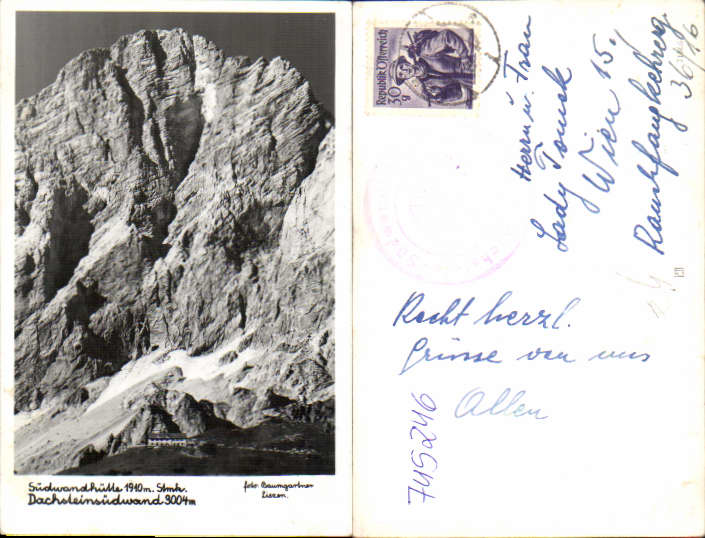 Südwandhütte 1910m. Stmk.
Dachsteinsüdwand 3004m
foto: Baumgartner
Liezen.
Republik Österreich
30 g
Herrn u. Frau
Lady Tomek
Wien 15.
Rauchfangkehrerg.
36/16
Recht herzl.
Grüsse von uns
Allen
745246